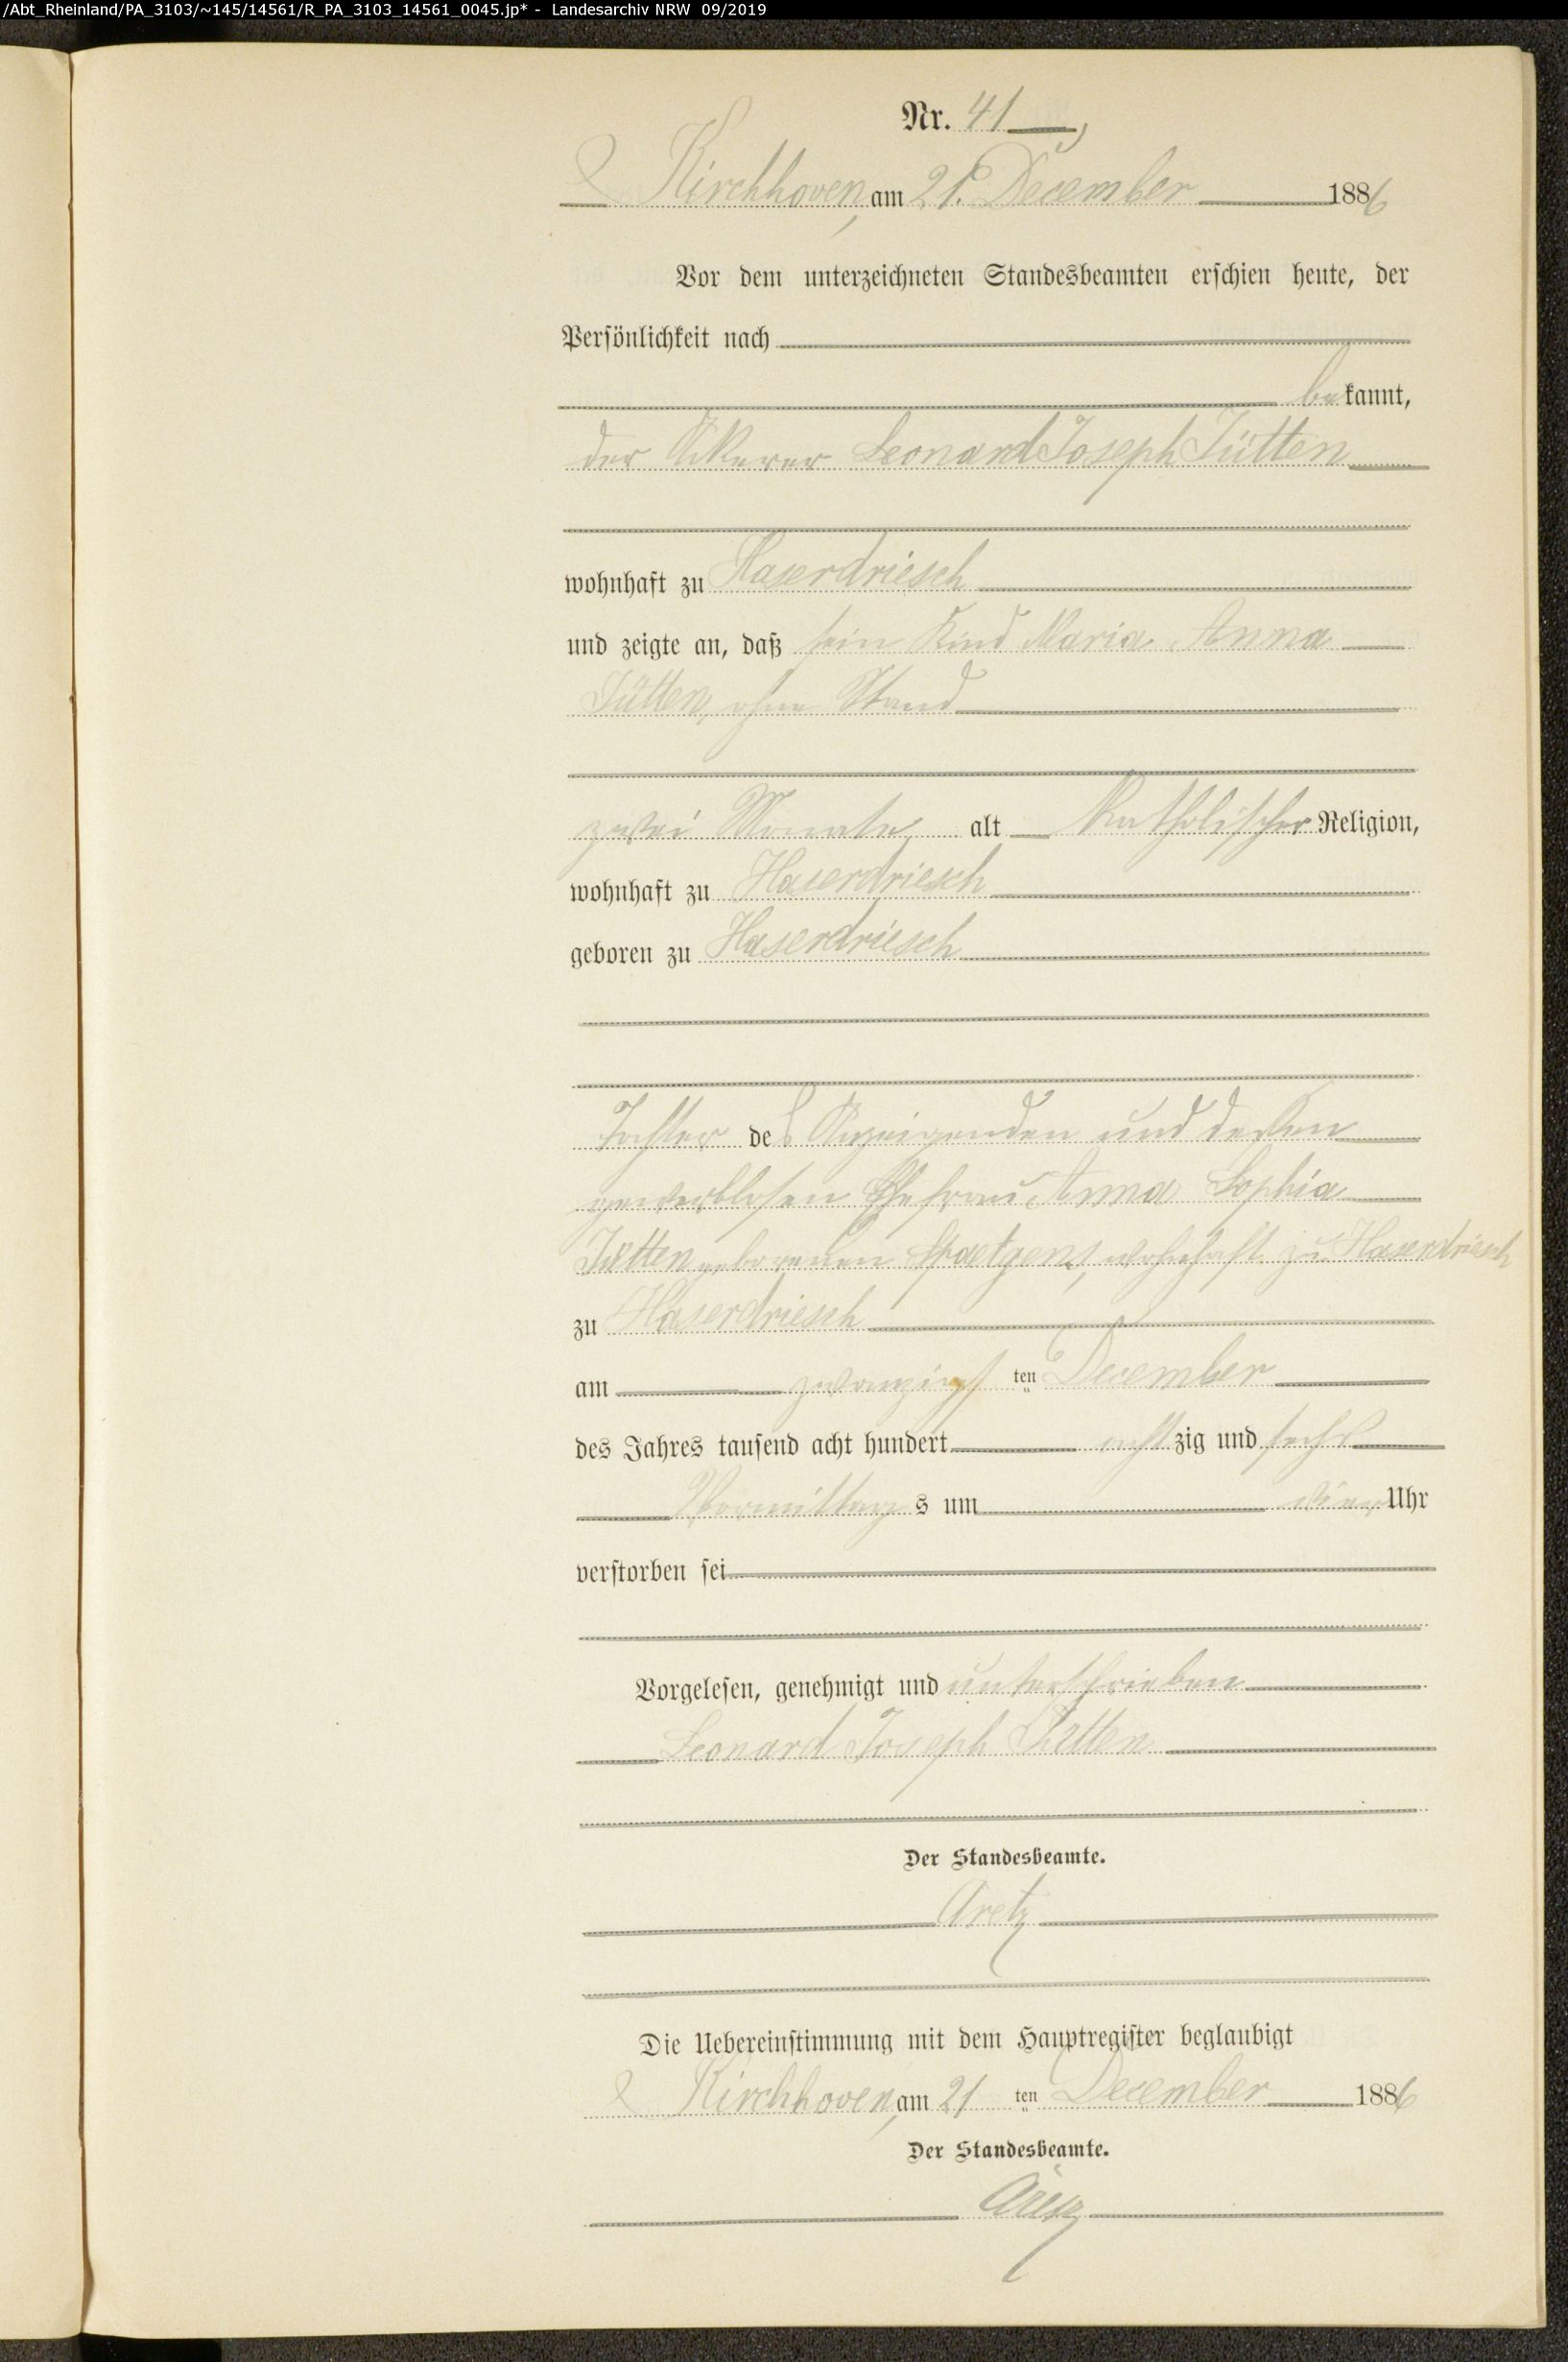 /Abt_Rheinland/PA_3103/~145/14561/R_PA_3103_14561_0045.jp* - Landesarchiv NRW 09/2019
Nr. 41
Kirchhoven, am 21. December 1886
Vor dem unterzeichneten Standesbeamten erschien heute, der
Persönlichkeit nach
bekannt,
der Ackerer Leonard Joseph Jütten
wohnhaft zu Haserdriesch
und zeigte an, daß sein Kind Maria Anna
Jütten, ohne Stand
zwei Monate alt katholischer Religion,
wohnhaft zu Haserdriesch
geboren zu Haserdriesch
Tochter des Anzeigenden und dessen
gewerblosen Ehefrau Anna Sophia
Jütten geborenen Spaetgens, wohnhaft zu Haserdriesch
zu Haserdriesch
am zwanzigsten December
des Jahres tausend acht hundert achtzig und sechs
Vormittags um vier Uhr
verstorben sei
Vorgelesen, genehmigt und unterschrieben
Leonard Joseph Jütten
Der Standesbeamte.
Aretz
Die Uebereinstimmung mit dem Hauptregister beglaubigt
Kirchhoven, am 21 ten December 1886
Der Standesbeamte.
Aretz